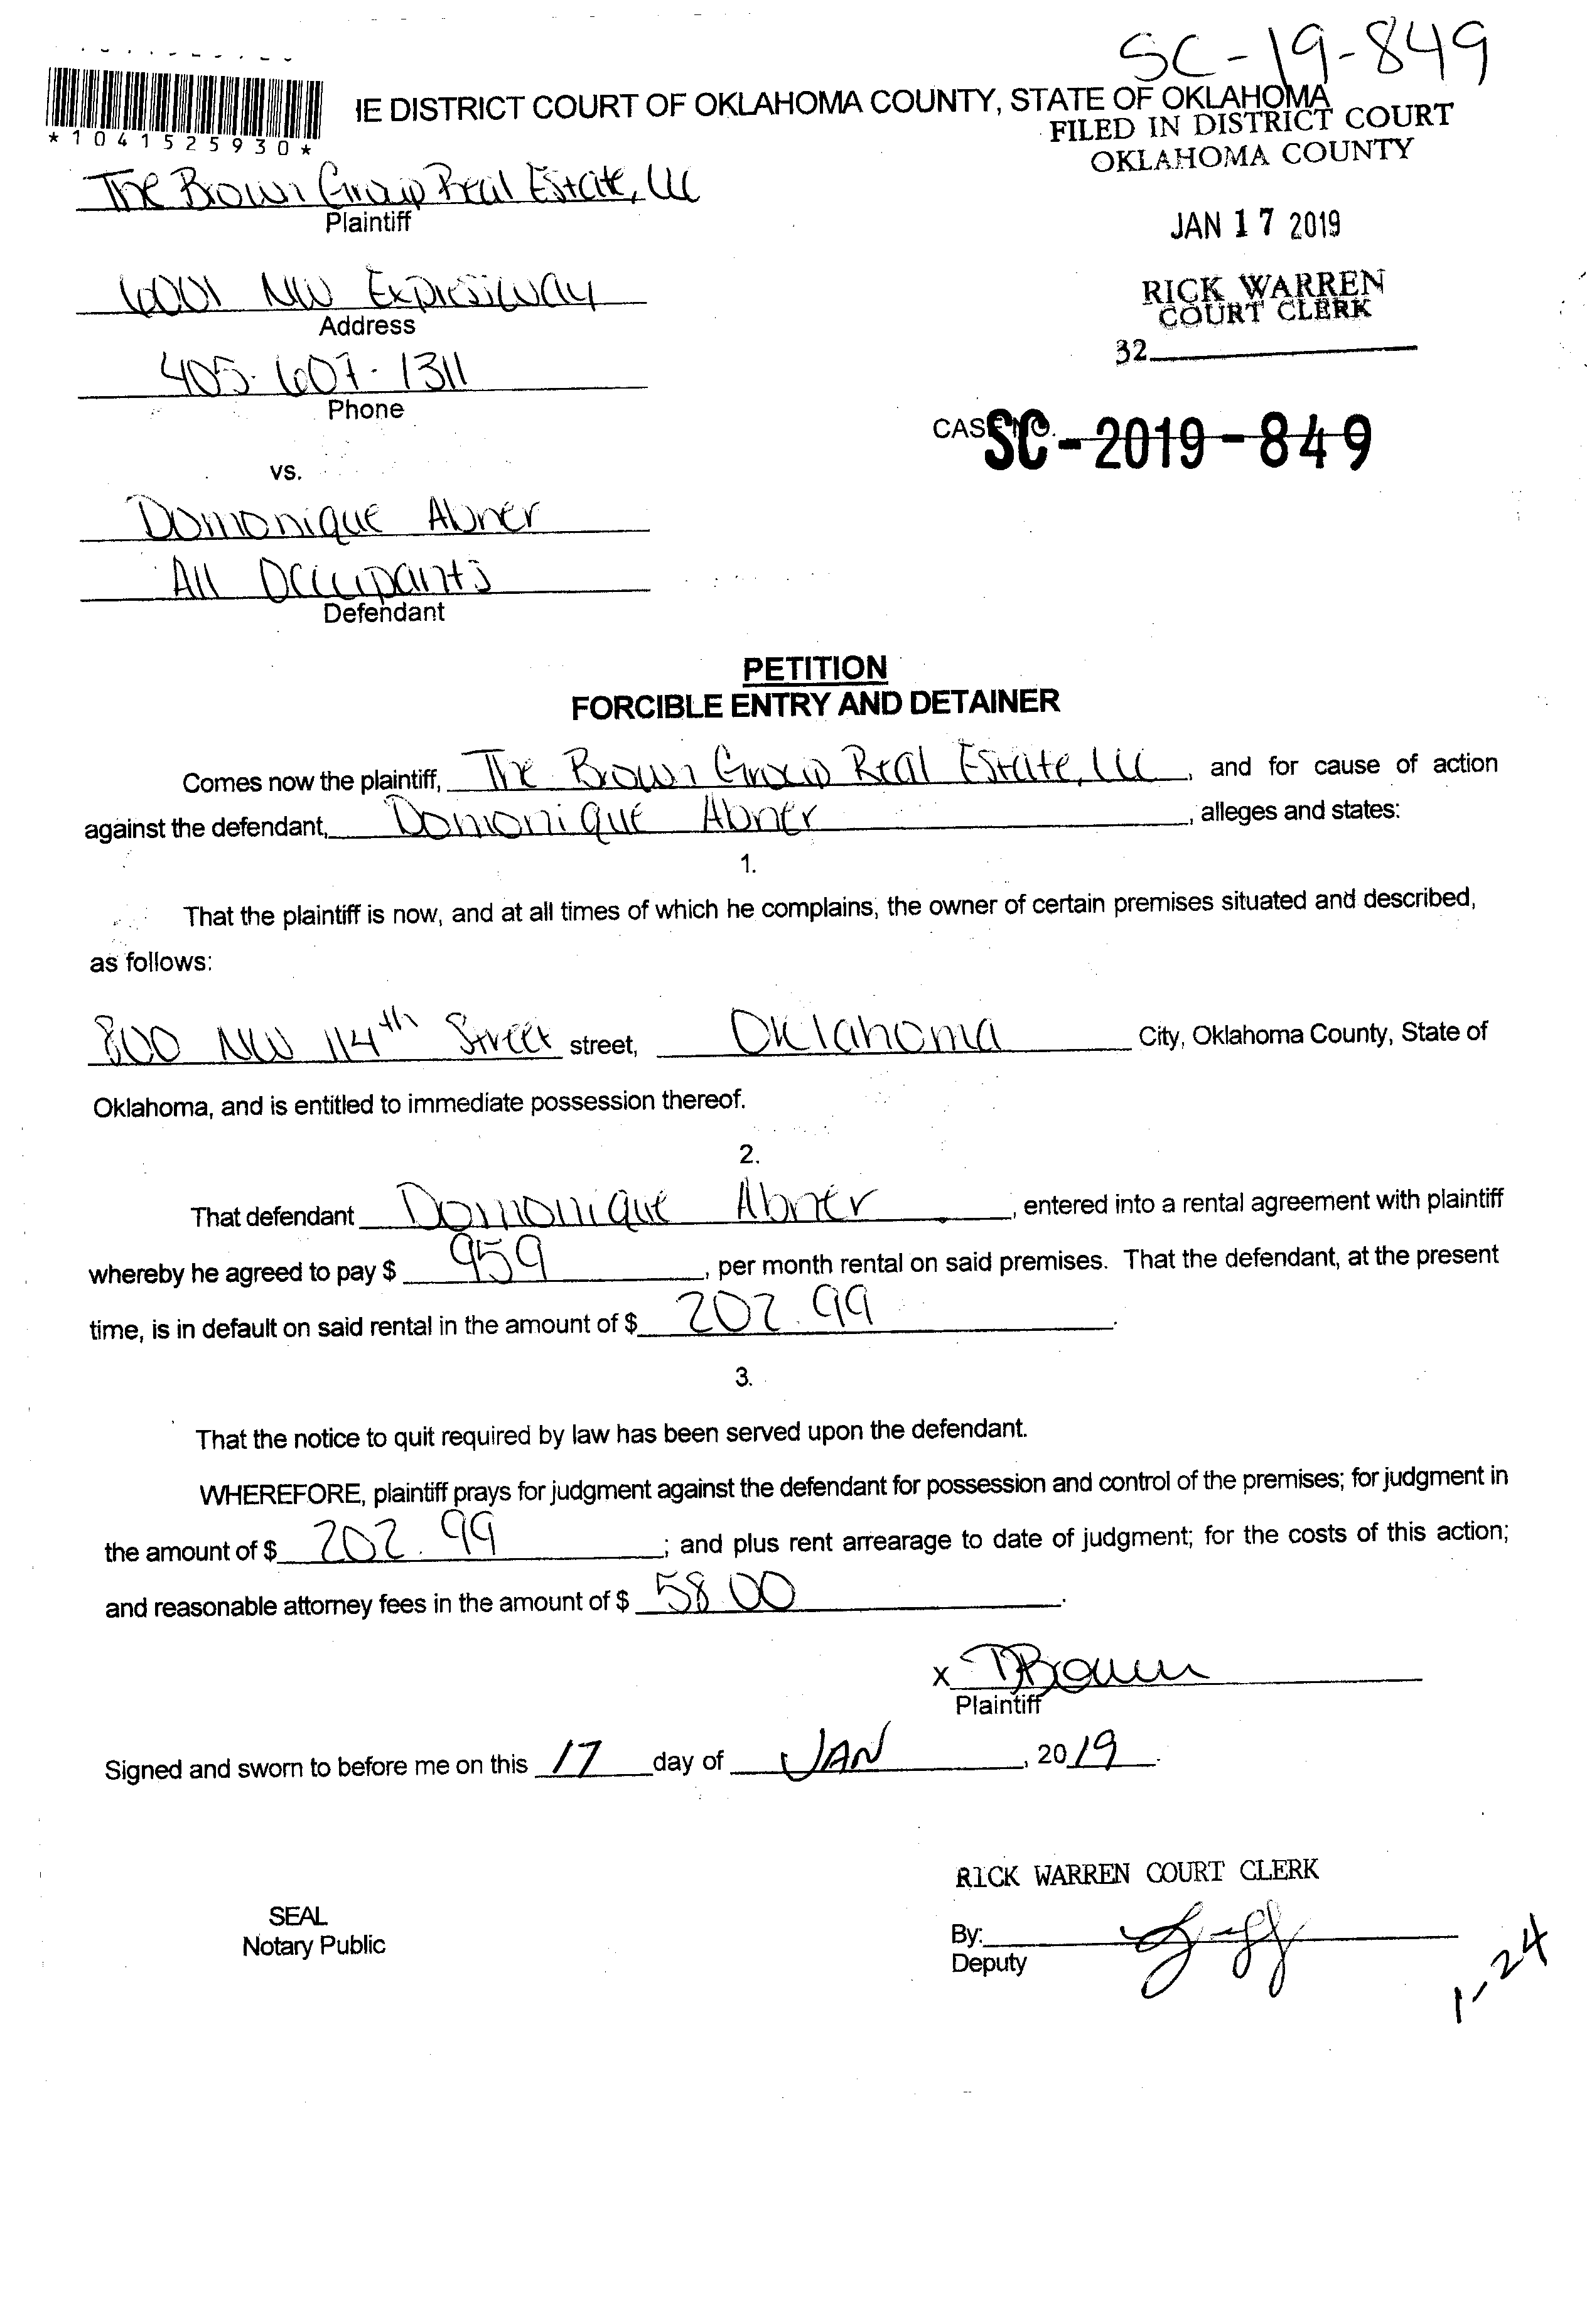 SC-19-849
*1041525930*
IE DISTRICT COURT OF OKLAHOMA COUNTY, STATE OF OKLAHOMA
FILED IN DISTRICT COURT
OKLAHOMA COUNTY
The Brown Group Real Estate, LLC
Plaintiff
JAN 17 2019
6001 NW Expressway
Address
RICK WARREN
COURT CLERK
32
405-607-1311
Phone
CASE NO. SC-2019-849
vs.
Domonique Abner
All Occupants
Defendant
PETITION
FORCIBLE ENTRY AND DETAINER
Comes now the plaintiff, The Brown Group Real Estate, LLC, and for cause of action
against the defendant, Domonique Abner, alleges and states:
1.
That the plaintiff is now, and at all times of which he complains, the owner of certain premises situated and described,
as follows:
800 NW 114th Street street, Oklahoma City, Oklahoma County, State of
Oklahoma, and is entitled to immediate possession thereof.
2.
That defendant Domonique Abner, entered into a rental agreement with plaintiff
whereby he agreed to pay $ 959, per month rental on said premises. That the defendant, at the present
time, is in default on said rental in the amount of $ 202.99.
3.
That the notice to quit required by law has been served upon the defendant.
WHEREFORE, plaintiff prays for judgment against the defendant for possession and control of the premises; for judgment in
the amount of $ 202.99; and plus rent arrearage to date of judgment; for the costs of this action;
and reasonable attorney fees in the amount of $ 58.00.
x TBrown
Plaintiff
Signed and sworn to before me on this 17 day of JAN, 2019.
RICK WARREN COURT CLERK
SEAL
Notary Public
By:
Deputy
1-24